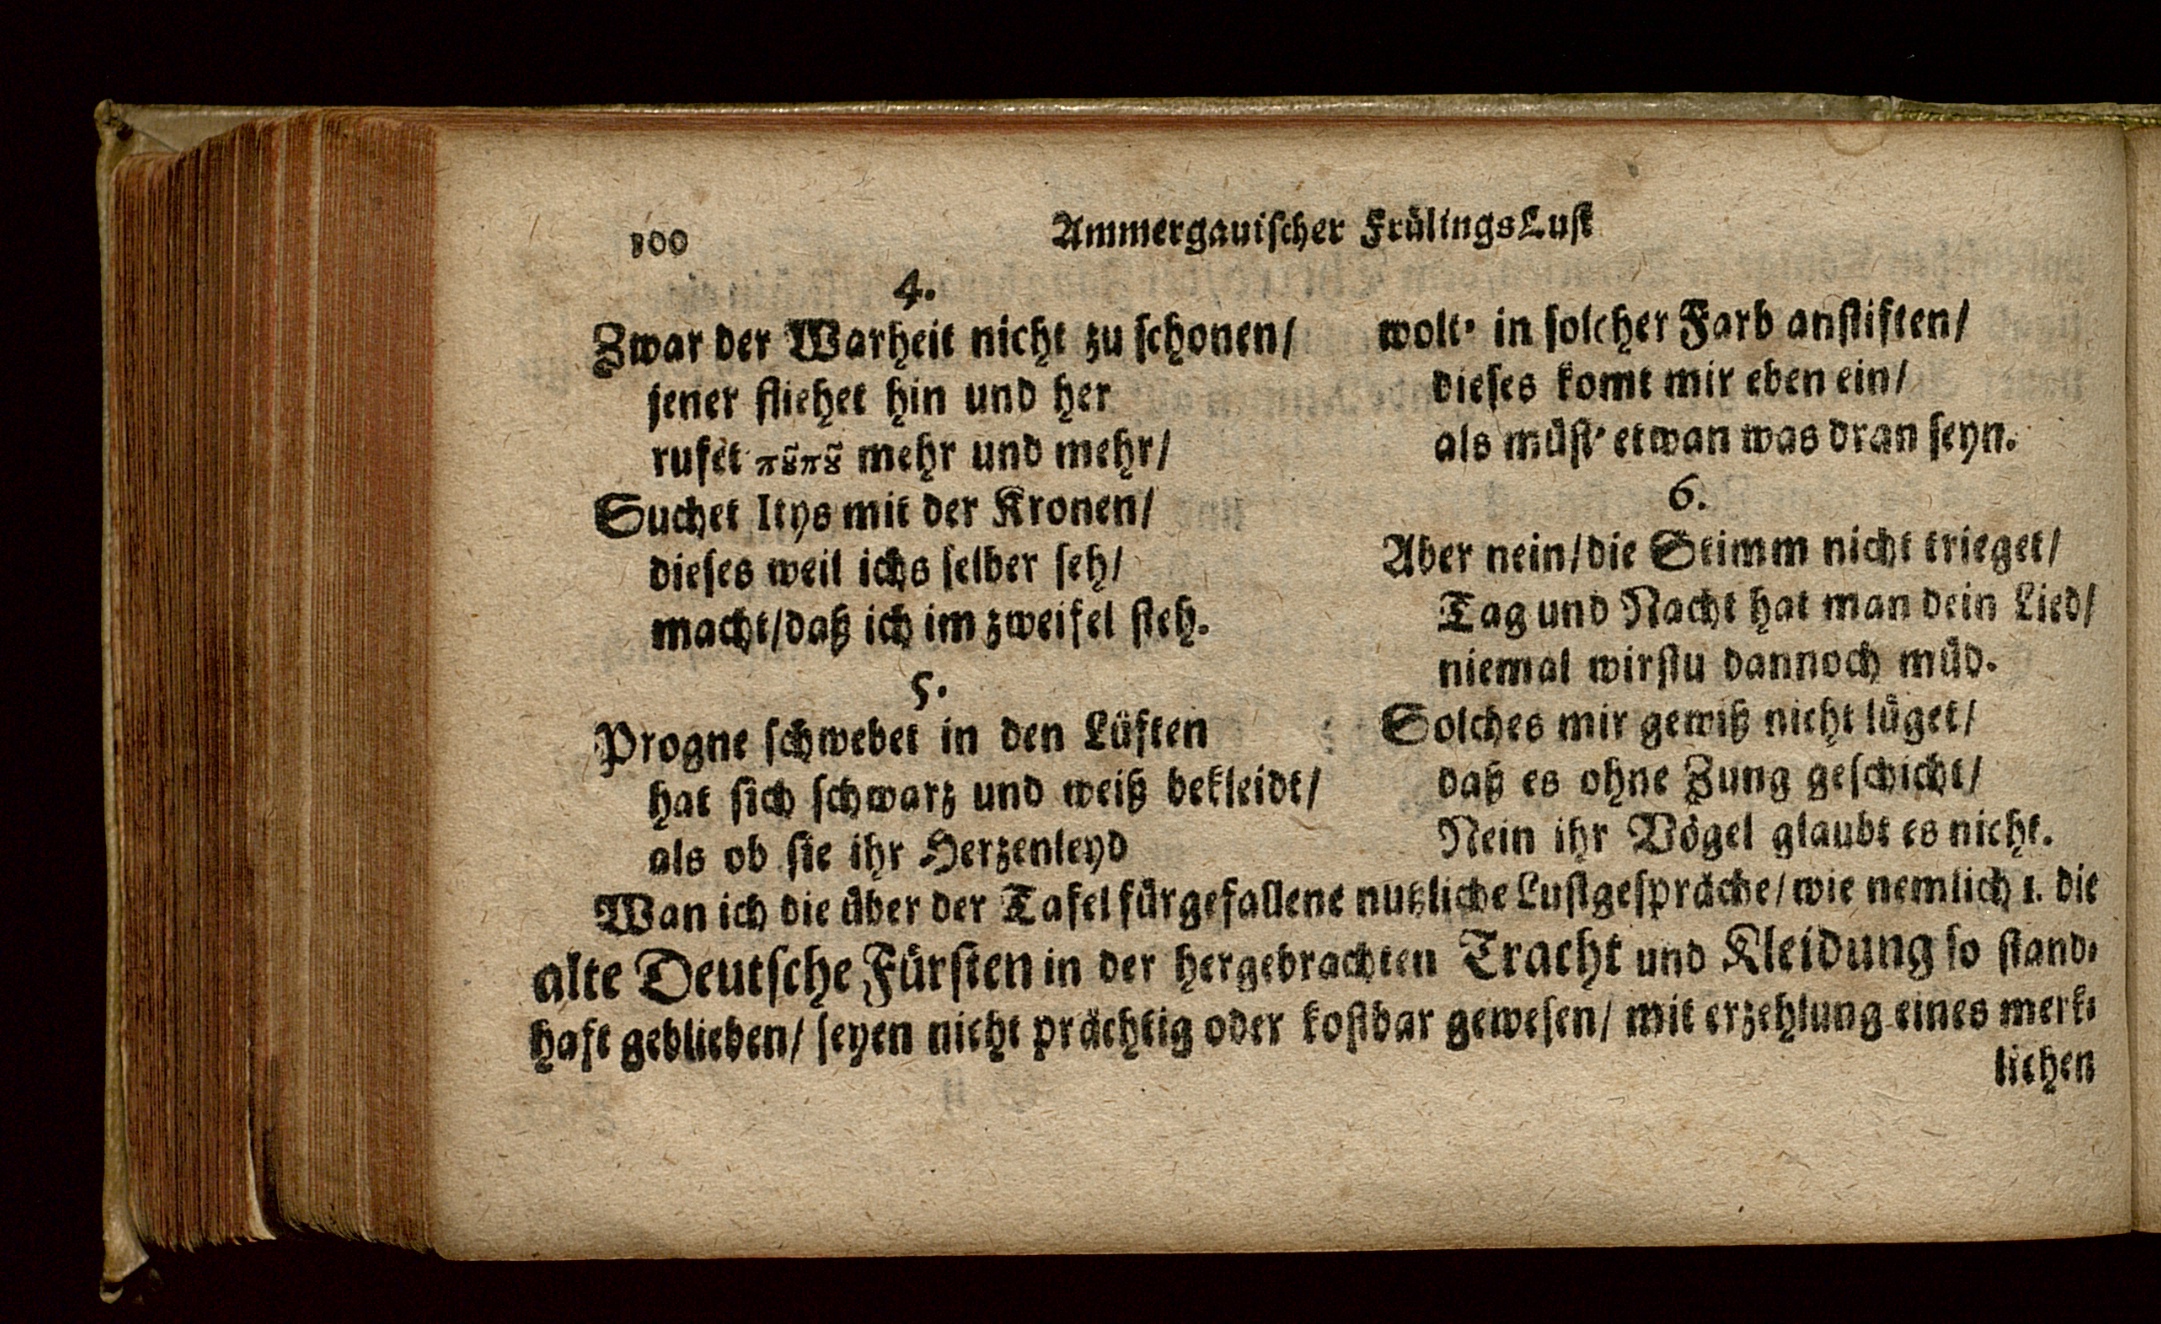 100 Ammergauischer FrülingsLust
4.
Zwar der Warheit nicht zu schonen/
jener fliehet hin und her
rufet πȣ͂πȣ͂ mehr und mehr/
Suchet Itys mit der Kronen/
dieses weil ichs selber seh/
macht/daß ich im zweifel steh.
5.
Progne schwebet in den Lüften
hat sich schwarz und weiß bekleidt/
als ob sie ihr Herzenleyd
wolt' in solcher Farb anstiften/
dieses komt mir eben ein/
als müst' etwan was dran seyn.
6.
Aber nein/die Stimm nicht trieget/
Tag und Nacht hat man dein Lied/
niemal wirstu dannoch müd.
Solches mir gewiß nicht lüget/
daß es ohne Zung geschicht/
Nein ihr Vögel glaubt es nicht.
Wan ich die über der Tafel fürgefallene nutzliche Lustgespräche/wie nemlich 1. die
alte Deutsche Fürsten in der hergebrachten Tracht und Kleidung so stand-
haft geblieben/ seyen nicht prächtig oder kostbar gewesen/ mit erzehlung eines merk-
lichen